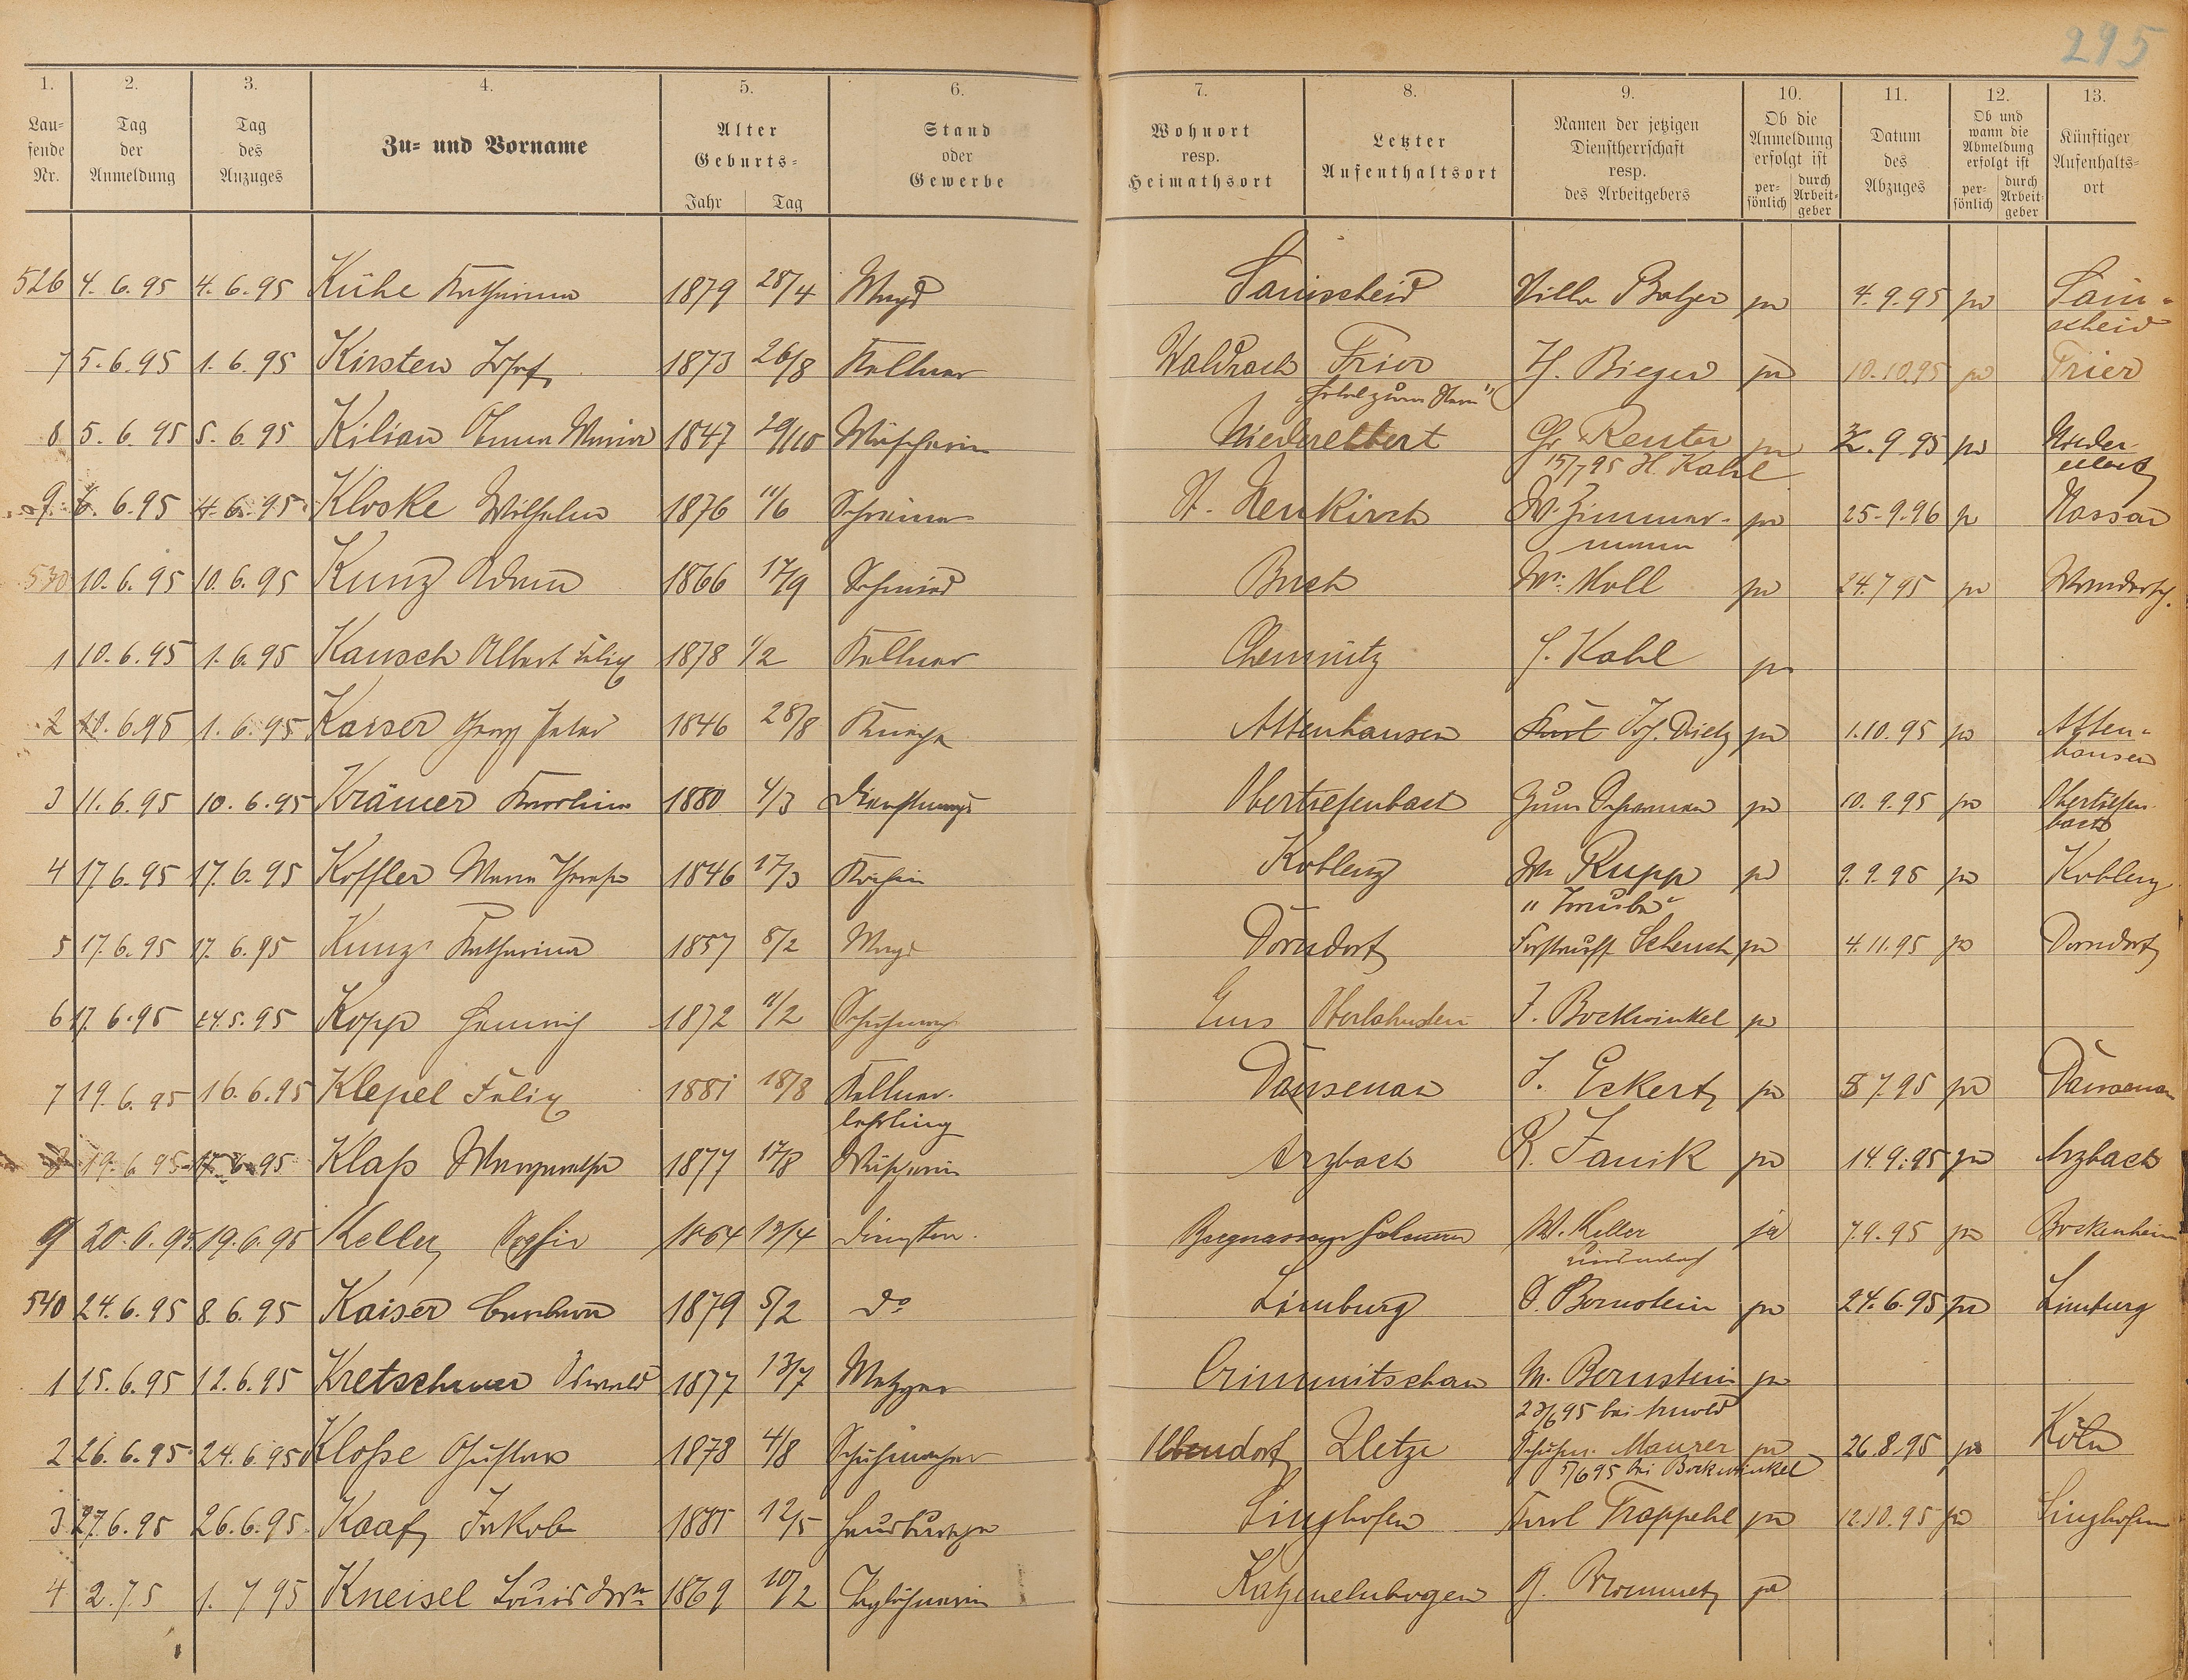 295
1. 2. 3. 4. 5. 6. 7. 8. 9. 10. 11. 12. 13.
Laufende Nr.
Tag der Anmeldung
Tag des Anzuges
Zu- und Vorname
Alter Geburts- Jahr Tag
Stand oder Gewerbe
Wohnort resp. Heimathsort
Letzter Aufenthaltsort
Namen der jetzigen Dienstherrschaft resp. des Arbeitgebers
Ob die Anmeldung erfolgt ist persönlich durch Arbeitgeber
Datum des Abzuges
Ob und wann die Abmeldung erfolgt ist persönlich durch Arbeitgeber
Künftiger Aufenthaltsort
526 4.6.95 4.6.95 Kühe Katharina 1879 28/4 Magd Sainscheid Villa Balzer 4.9.95 Sain-
scheid
7 5.6.95 1.6.95 Kirsten Josef 1873 26/8 Kellner Waldrach Trier H. Bieger 10.10.95 Trier
8 5.6.95 5.6.95 Kilian Anna Maria 1847 29/10 Wäscherin Niederelbert Reuter 9.95 Nieder
15/7 95 H. Kahl elbert
9 6.6.95 4.6.95 Kloske Wilhelm 1876 11/6 Schreiner Neukirch W. Zimmer- 25.9.96 Nassau
mann
530 10.6.95 10.6.95 Kunz Adam 1866 17/9 Schmied Buch Moll 24.7 95 Wandersch.
1 10.6.95 1.6.95 Kausch Albert Felix 1878 1/2 Kellner Chemnitz Kahl
2 10.6.95 1.6.95 Kaiser Georg Peter 1846 28/8 Knecht Attenhausen Jos. Dietz 1.10.95 Atten-
hausen
3 11.6.95 10.6.95 Krämer Karoline 1880 4/3 Dienstmagd Obertiefenbach 10.9.95 Obertiefen
bach
4 17.6.95 17.6.95 Koffler Maria Therese 1846 17/3 Köchin Koblenz Rupp 9.9.95 Koblenz
5 17.6.95 17.6.95 Kunz Katharina 1857 8/2 Magd Dorndorf Schenck 4.11.95 Dorndorf
6 17.6.95 24.5.95 Kopp Heinrich 1872 11/2 Schuhmach Ems Oberlahnstein J. Bockwinkel
7 19.6.95 16.6.95 Klepel Felix 1881 18/8 Kellner- Dausenau J. Eckert 8 7.95 Dausenau
lehrling
8 19.6 95 17.6.95 Klaß Margaretha 1877 17/8 Wäscherin Arzbach K. Janik 14.9.95 Arzbach
9 20.6.95 19.6.95 Keller Sophie 1864 13/4 Dienstm. Bergnassau Scheuern W. Keller ja 7.9.95 Bockenheim
Lindenbach
540 24.6.95 8.6.95 Kaiser Barbara 1879 5/2 do Limburg Bernstein 24.6.95 Limburg
1 25.6.95 12.6.95 Kretschmer Oswald 1877 13/7 Metzger Crimmitschau M. Bernstein
2 26.6.95 24.6.95 Kloße Gustav 1878 4/8 Schuhmacher Maurer 26.8.95 Köln
bei Bockwinkel
3 27.6.95 26.6.95 Kaaf Jakob 1881 12/5 Hausbursche Singhofen Karl Trappehl 12.10.95 Singhofen
4 2.7.5 1.7 95 Kneisel Louis 1869 10/2 Taglöhnerin Katzenelnbogen ja